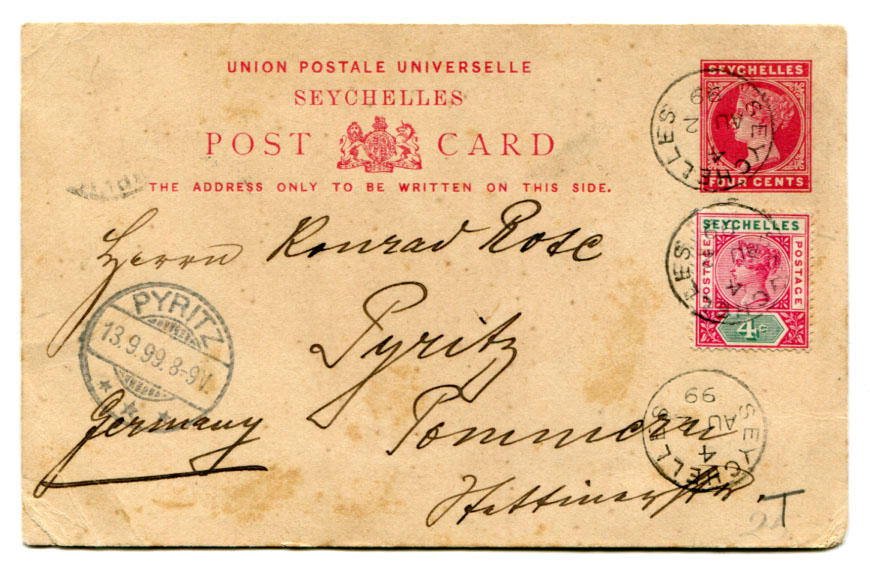 UNION POSTALE UNIVERSELLE
SEYCHELLES
POST CARD
THE ADDRESS ONLY TO BE WRITTEN ON THIS SIDE.
SEYCHELLES
FOUR CENTS
SEYCHELLES
AU 2
99
SEYCHELLES
POSTAGE
POSTAGE
4c
SEYCHELLES
Herrn Konrad Rose
Pyritz
PYRITZ
13.9.99.8-9V.
Germany
Pommern
Stettinerstr.
SEYCHELLES
4
AU
99
T